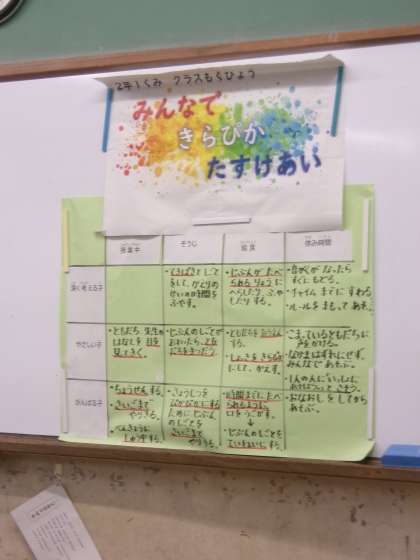 2年1くみ クラスもくひょう
みんなで
きらぴか
たすけあい
授業中
そうじ
給食
休み時間
深く考える子
・じぶんがたべ
られるりょうに
へらしたり ふや
したりする。
・音がくが なったら
すぐにもどる。
・チャイムまでに すわる
・ルールを まもって あそぶ。
やさしい子
・ともだち、先生の
はなしを 目を
見てきく。
・じぶんのしごとが
おわったら、ともだ
ちをてつだう。
・ともだちをおうえん
する。
・しょっきをきらきら
にして、かえす。
・こまっているともだちに
声をかける。
・なかまはずれにせず、
みんなであそぶ。
がんばる子
・ちょうせんする。
・さいごまで
やりきる。
・べんきょうに
しゅう中する。
・きょうしつを
ぴかぴかにする
ために じぶん
のしごとを
さいごまで
やりきる。
・時間までにたべ
られるように
口をうごかす。
↓
・じぶんのしごとを
ていねいにする。
・おなおしをしてから
あそぶ。